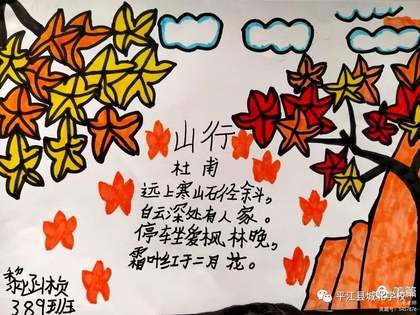 山行
杜甫
远上寒山石径斜,
白云深处有人家。
停车坐爱枫林晚,
霜叶红于二月花。
黎 桢
389班
美篇
平江县城北学校